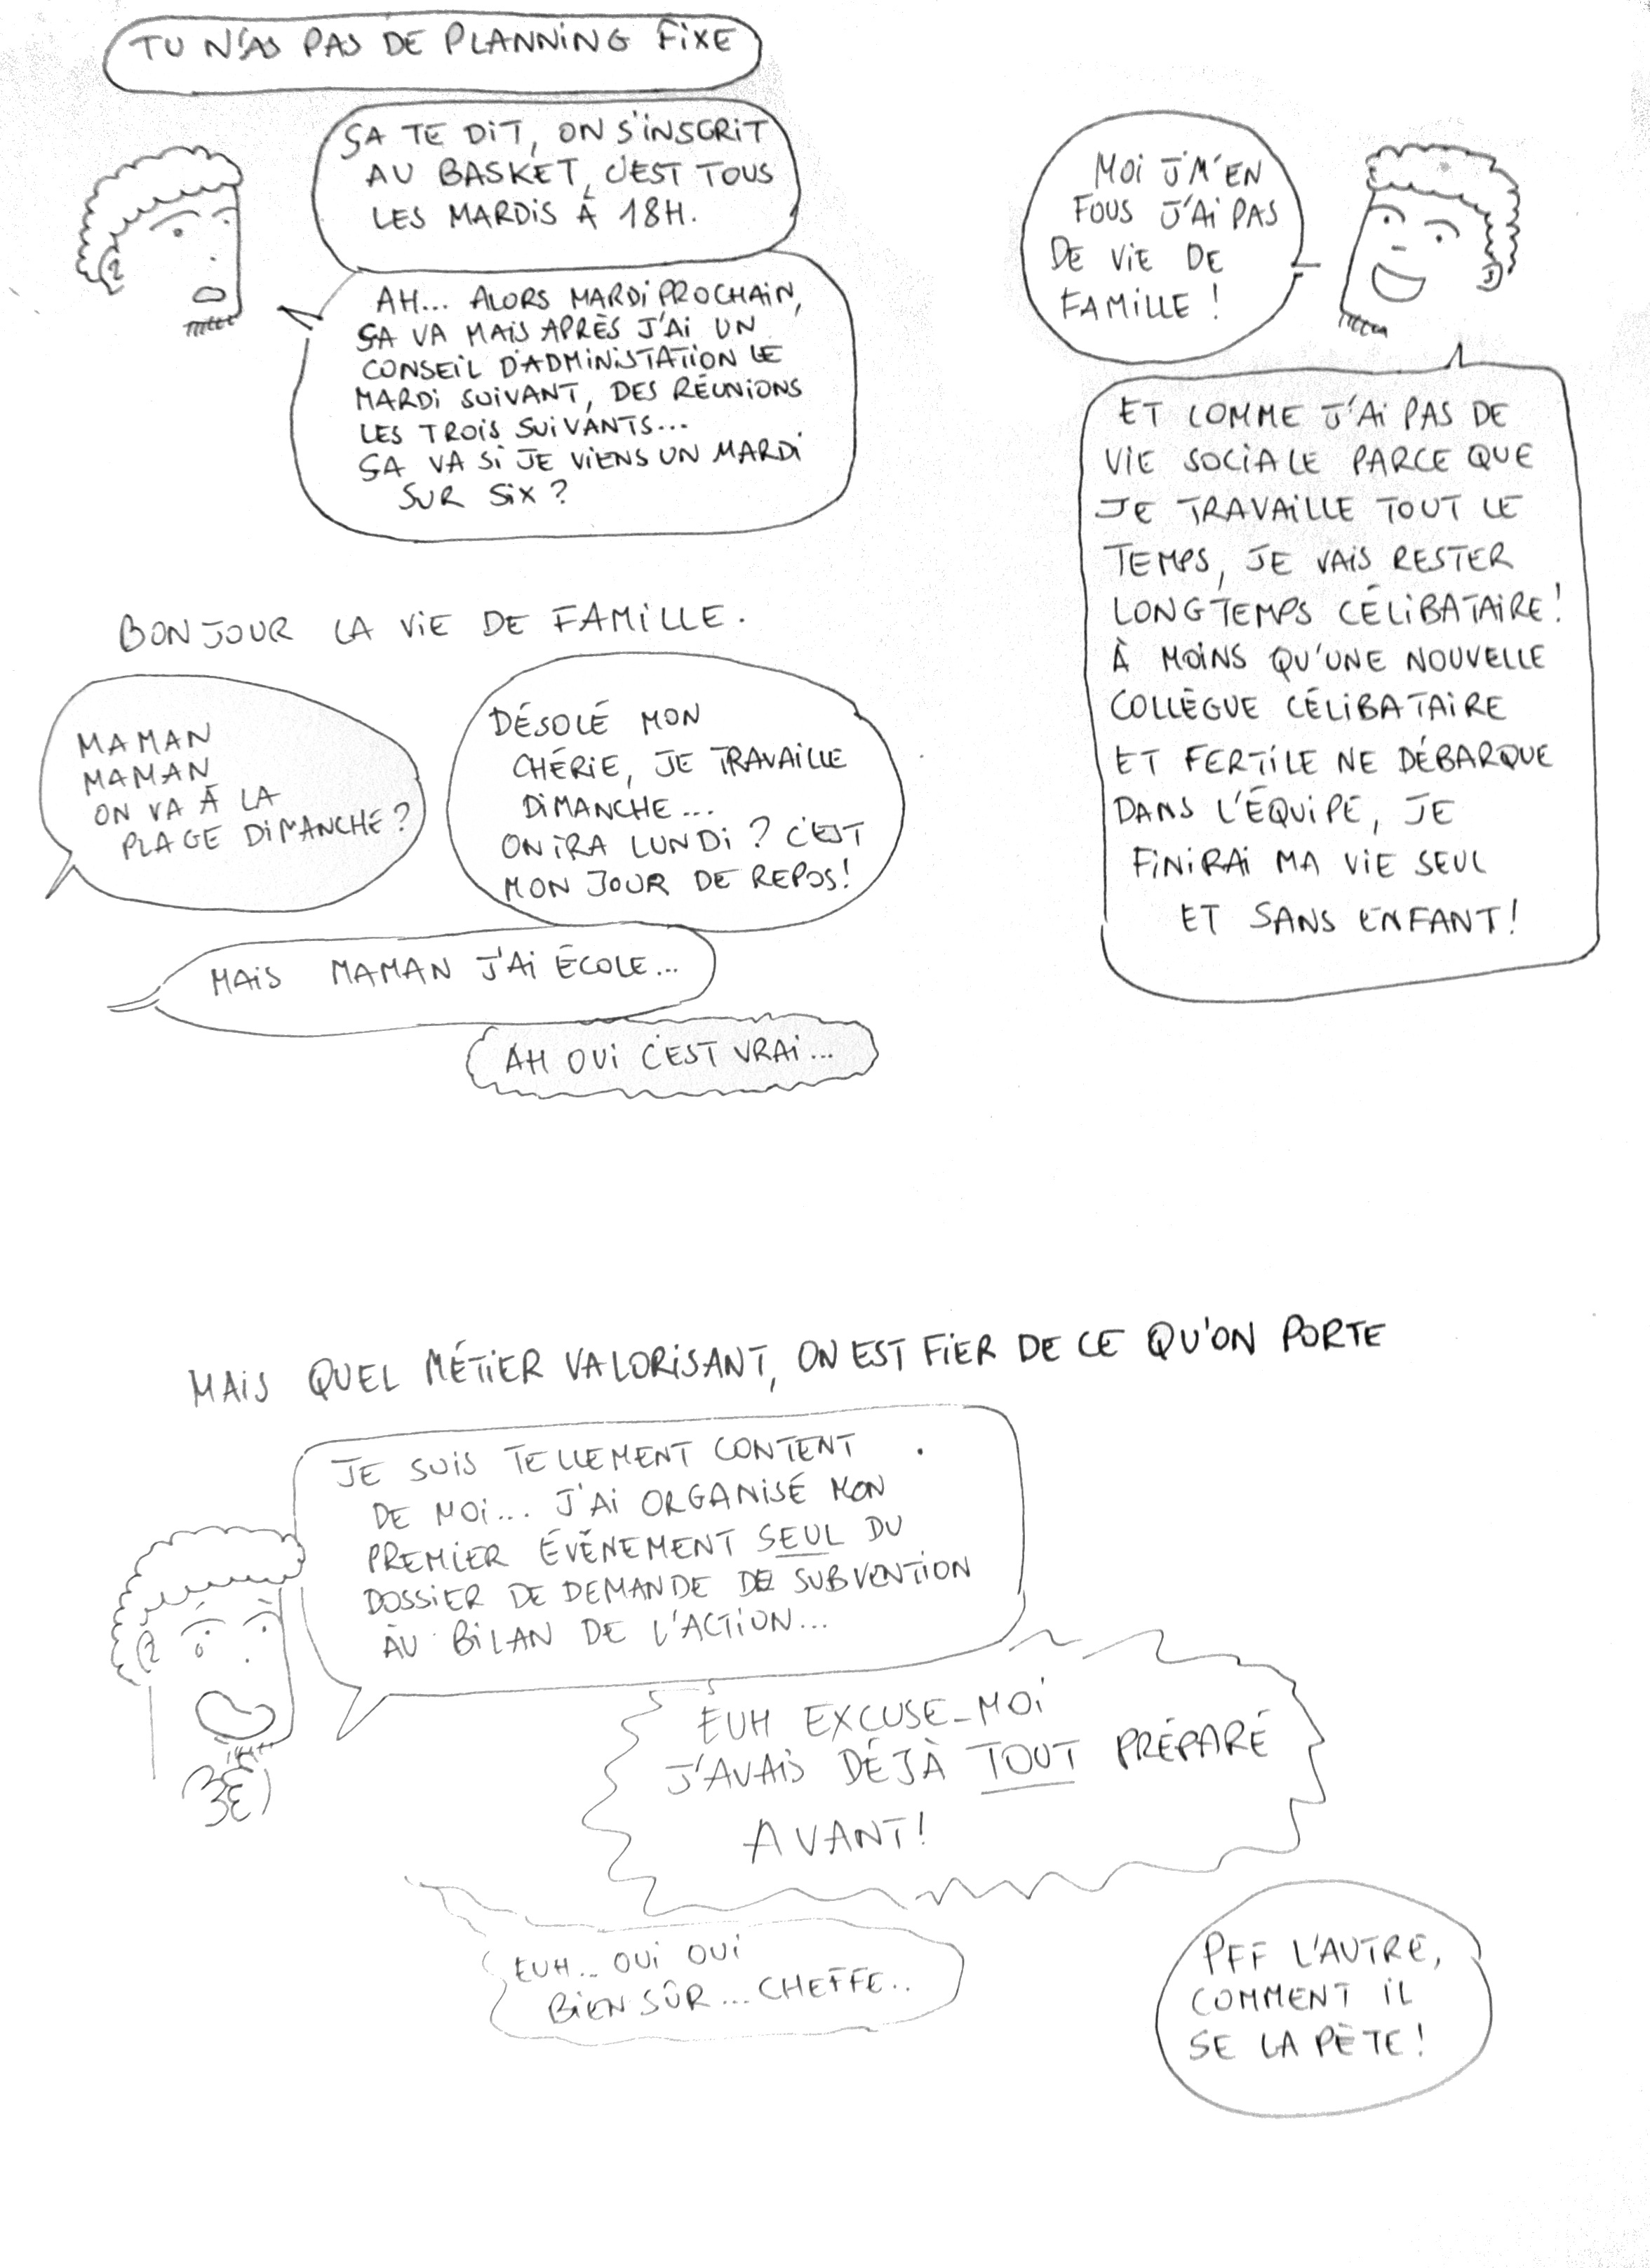 TU N'AS PAS DE PLANNING FIXE
ÇA TE DIT, ON S'INSCRIT
AU BASKET, C'EST TOUS
LES MARDIS À 18H.
AH... ALORS MARDI PROCHAIN,
ÇA VA MAIS APRÈS J'AI UN
CONSEIL D'ADMINISTATION LE
MARDI SUIVANT, DES RÉUNIONS
LES TROIS SUIVANTS...
ÇA VA SI JE VIENS UN MARDI
SUR SIX ?
MOI J'M'EN
FOUS J'AI PAS
DE VIE DE
FAMILLE !
ET COMME J'AI PAS DE
VIE SOCIALE PARCE QUE
JE TRAVAILLE TOUT LE
TEMPS, JE VAIS RESTER
LONGTEMPS CÉLIBATAIRE !
À MOINS QU'UNE NOUVELLE
COLLÈGUE CÉLIBATAIRE
ET FERTILE NE DÉBARQUE
DANS L'ÉQUIPE, JE
FINIRAI MA VIE SEUL
ET SANS ENFANT !
BONJOUR LA VIE DE FAMILLE.
MAMAN
MAMAN
ON VA À LA
PLAGE DIMANCHE ?
DÉSOLÉ MON
CHÉRIE, JE TRAVAILLE
DIMANCHE...
ON IRA LUNDI ? C'EST
MON JOUR DE REPOS !
MAIS MAMAN J'AI ÉCOLE...
AH OUI C'EST VRAI...
MAIS QUEL MÉTIER VALORISANT, ON EST FIER DE CE QU'ON PORTE
JE SUIS TELLEMENT CONTENT
DE MOI... J'AI ORGANISÉ MON
PREMIER ÉVÈNEMENT SEUL DU
DOSSIER DE DEMANDE DE SUBVENTION
AU BILAN DE L'ACTION...
EUH EXCUSE-MOI
J'AVAIS DÉJÀ TOUT PRÉPARÉ
AVANT !
EUH... OUI OUI
BIEN SÛR... CHEFFE..
PFF L'AUTRE,
COMMENT IL
SE LA PÈTE !